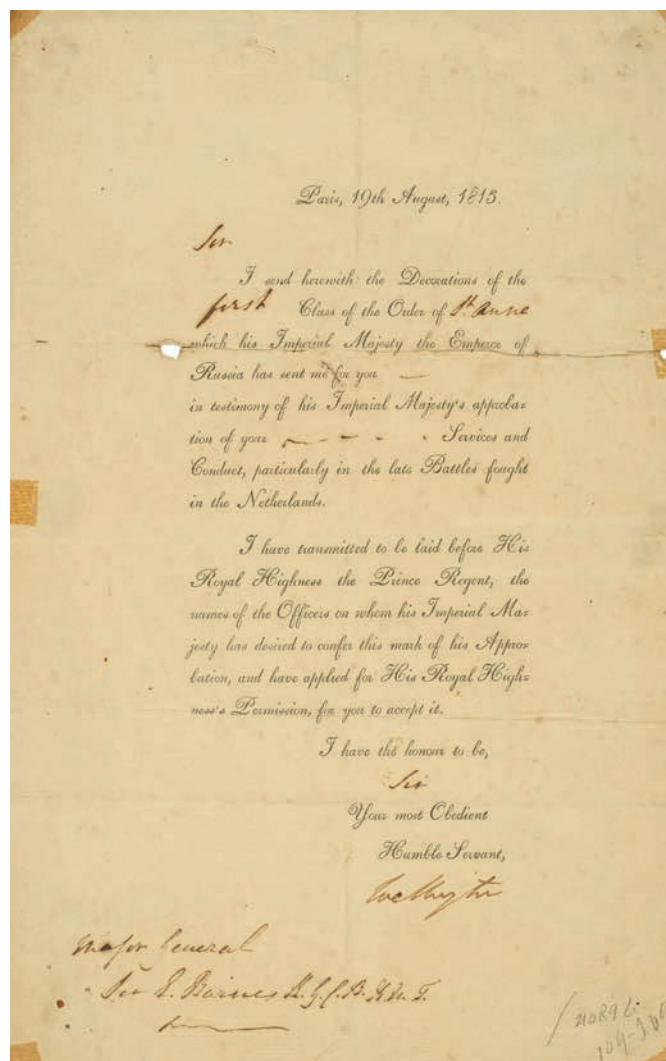 Paris, 19th August, 1815.
Sir
I send herewith the Decorations of the
first Class of the Order of St. Anne
which his Imperial Majesty the Emperor of
Russia has sent me for you —
in testimony of his Imperial Majesty's approba=
tion of your — - - - Services and
Conduct, particularly in the late Battles fought
in the Netherlands.
I have transmitted to be laid before His
Royal Highness the Prince Regent, the
names of the Officers on whom his Imperial Ma=
jesty has desired to confer this mark of his Appro=
bation, and have applied for His Royal High=
ness's Permission, for you to accept it.
I have the honour to be,
Sir
Your most Obedient
Humble Servant,
Wellington
Major General
Sir E. Barnes K.G.C.B. K.M.T.